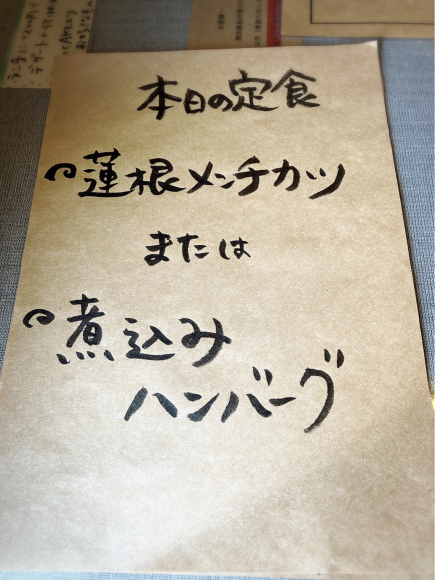 本日の定食
蓮根メンチカツ
または
煮込み
ハンバーグ